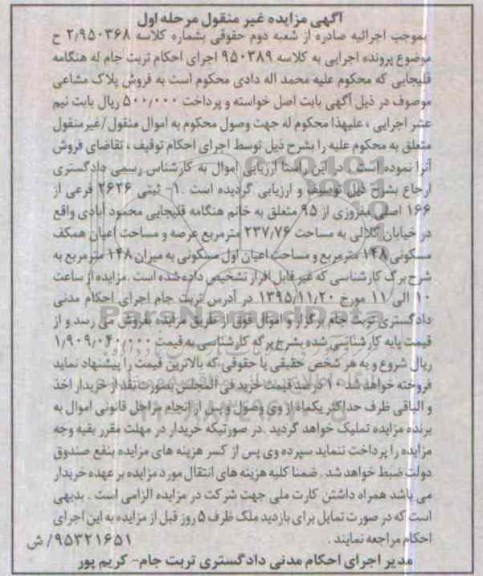 آگهی مزایده غیر منقول مرحله اول
بموجب اجرائیه صادره از شعبه دوم حقوقی بشماره کلاسه ۲/۹۵۰۳۶۸ ح
موضوع پرونده اجرایی به کلاسه ۹۵۰۳۸۹ اجرای احکام تربت جام له هنگامه
قلیجایی که محکوم علیه محمد اله دادی محکوم است به فروش پلاک مشاعی
موصوف در ذیل آگهی بابت اصل خواسته و پرداخت ۵۰۰/۰۰۰ ریال بابت نیم
عشر اجرایی ، علیهذا محکوم له جهت وصول محکوم به اموال منقول/غیرمنقول
متعلق به محکوم علیه را بشرح ذیل توسط اجرای احکام توقیف ، تقاضای فروش
آنرا نموده است . در این راستا ارزیابی اموال به کارشناس رسمی دادگستری
ارجاع بشرح ذیل توصیف و ارزیابی گردیده است .۱- ثبتی ۲۶۲۶ فرعی از
۱۶۶ اصلی مفروزی از ۹۵ متعلق به خانم هنگامه قلیجایی محمود آبادی واقع
در خیابان گلالی به مساحت ۲۳۷/۷۶ مترمربع عرصه و مساحت اعیان همکف
مسکونی ۱۴۸ مترمربع و مساحت اعیان اول مسکونی به میزان ۱۴۸ مترمربع به
شرح برگ کارشناسی که غیر قابل افراز تشخیص داده شده است .مزایده از ساعت
۱۰ الی ۱۱ مورخ ۱۳۹۵/۱۱/۲۰ در آدرس تربت جام اجرای احکام مدنی
دادگستری تربت جام برگزار و اموال فوق از طریق مزایده بفروش می رسد و از
قیمت پایه کارشناسی شده بشرح برگه کارشناسی به قیمت ۱/۹۰۹/۰۴۰/۰۰۰
ریال شروع و به هر شخص حقیقی یا حقوقی که بالاترین قیمت را پیشنهاد نماید
فروخته خواهد شد .۱۰ درصد قیمت خرید فی المجلس بصورت نقد از خریدار اخذ
و الباقی ظرف حداکثر یکماه از وی وصول و پس از انجام مراحل قانونی اموال به
برنده مزایده تملیک خواهد گردید .در صورتیکه خریدار در مهلت مقرر بقیه وجه
مزایده را پرداخت ننماید سپرده وی پس از کسر هزینه های مزایده بنفع صندوق
دولت ضبط خواهد شد . ضمنا کلیه هزینه های انتقال مورد مزایده بر عهده خریدار
می باشد همراه داشتن کارت ملی جهت شرکت در مزایده الزامی است . بدیهی
است که در صورت تمایل برای بازدید ملک ظرف ۵ روز قبل از مزایده به این اجرای
احکام مراجعه نمایند .
۹۵۳۲۱۶۵۱/ ش
مدیر اجرای احکام مدنی دادگستری تربت جام- کریم پور
ParsNamadData